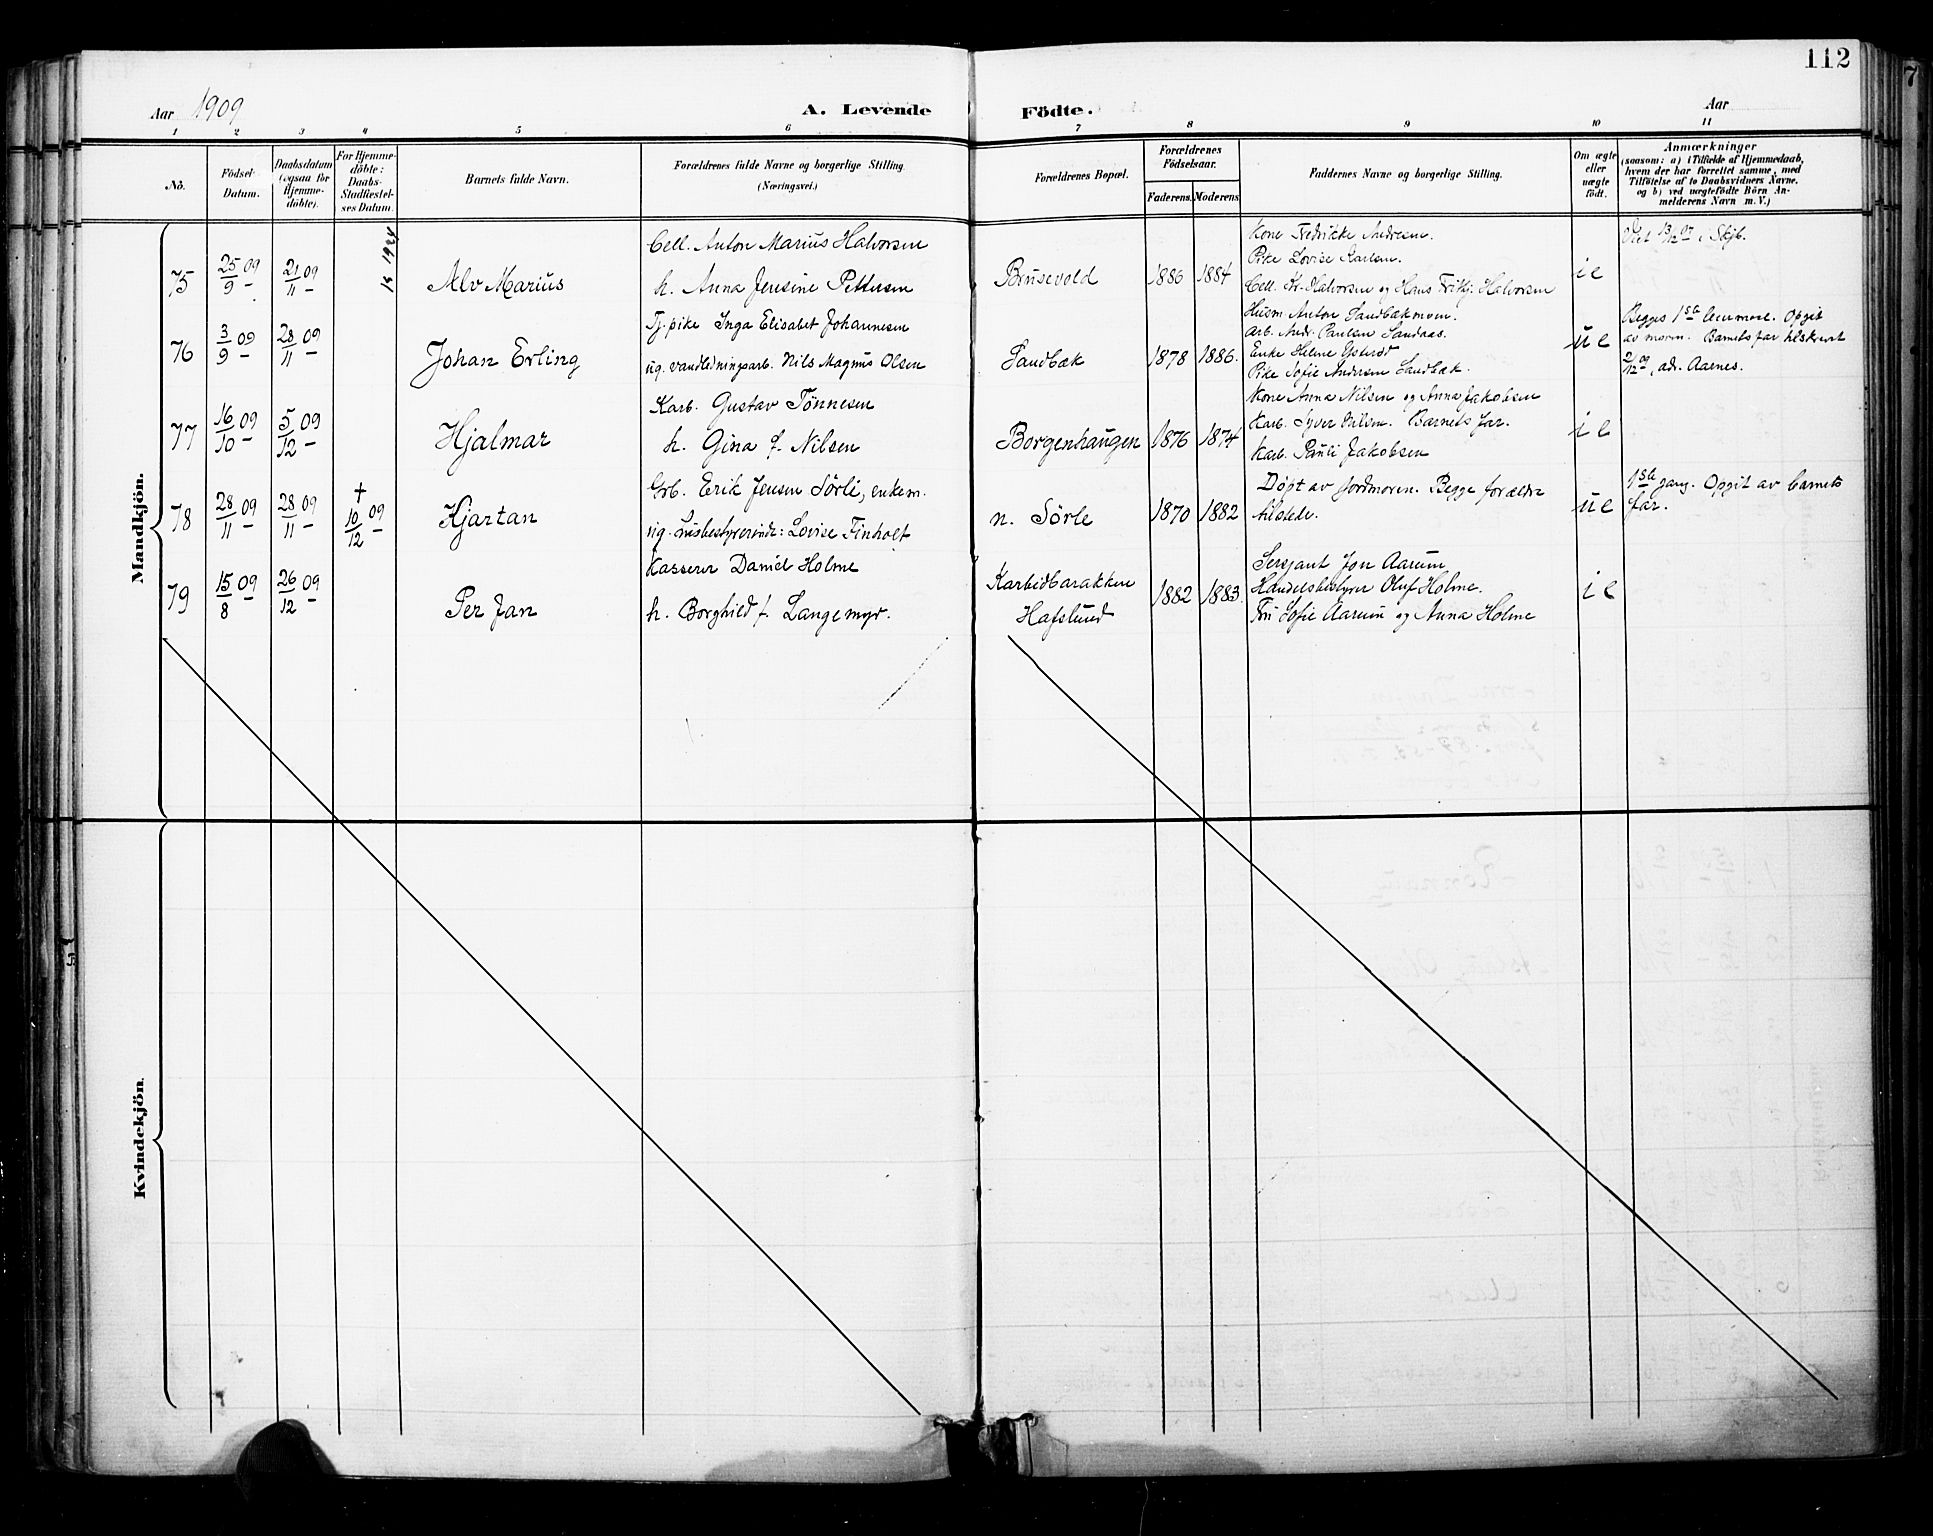 112
Aar 1909
A. Levende Födte.
Aar
1 2 3 4 5 6 7 8 9 10 11
No.
Födsel-
Datum.
Daabsdatum
(ogsaa for
Hjemme-
döbte).
For Hjemme-
döbte:
Daabs-
Stadfæstel-
ses Datum.
Barnets fulde Navn.
Forældrenes fulde Navne og borgerlige Stilling
(Næringsvei.)
Forældrenes Bopæl.
Forældrenes
Födselsaar.
Faderens. Moderens.
Faddernes Navne og borgerlige Stilling.
Om ægte
eller
uægte
födt.
Anmærkninger
(saasom: a) i Tilfælde af Hjemmedaab,
hvem der har forrettet samme, med
Tilföielse af to Daabsvidners Navne,
og b) ved uægtefödte Börn An-
melderens Navn m. V.)
Mandkjön.
75
25/9 09
21/11 09
1924
Alv Marius
Cell. Anton Marius Halvorsen
h. Anna Jensine Pettersen
Brusevold
1886 1884
Kone Fredrikke Andresen.
Pike Lovise Karlsen.
Cell. Kr. Halvorsen og Hans Frithj. Halvorsen
ie
13/12 07 i Skjb.
76
3/9 09
28/11 09
Johan Erling
Tj. pike Inga Elisabet Johannesen
ug. vandledningsarb. Nils Magnus Olsen
Sandbæk
1878 1886.
Husm. Anton Sandbækmoen.
Arb. Andr. Paulsen Sandaas.
Enke Helene Ysterød
Pike Sofie Andersen Sandbæk.
ue
Begges 1ste leiermaal. Opgit
av moren. Barnets far tilskrevet
2/12 09, adr. Aarnes.
77
16/10 09
5/12 09
Hjalmar
Karb. Gustav Tönnesen
h. Gina f. Nilsen
Borgenhaugen
1876 1874
Kone Anna Nilsen og Anna Jakobsen
Karb. Syver Nilsen. Barnets far.
Karb. Pauli Jakobsen
ie
78
28/11 09
28/11 09
+ 10/12 09
Kjartan
Grb. Erik Jensen Sörli, enkem.
ug. Husbestyrerinde: Lovise Finholt
n. Sörle
1870 1882
Döpt av jordmoren. Begge forældre
tilstede.
ue
1ste gang. Opgit av barnets
far.
79
15/8 09
26/12 09
Per Jan
Kasserer Daniel Holme
h. Borghild f. Langemyr.
Karbidbarakken
Hafslund
1882 1883.
Sersjant Jon Aarum
Handelsbestyrer Oluf Holme.
Fru Sofie Aarum og Anna Holme
ie
Kvindekjön.